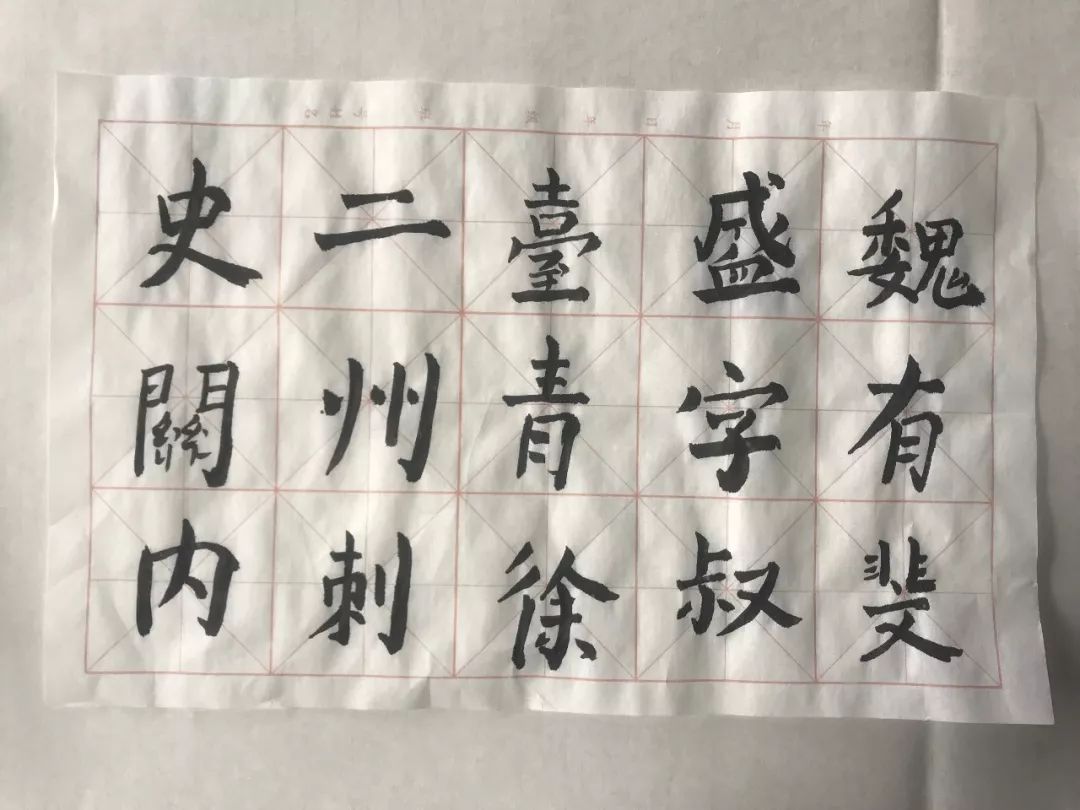 魏有斐
盛字叔
臺青徐
二州刺
史關内